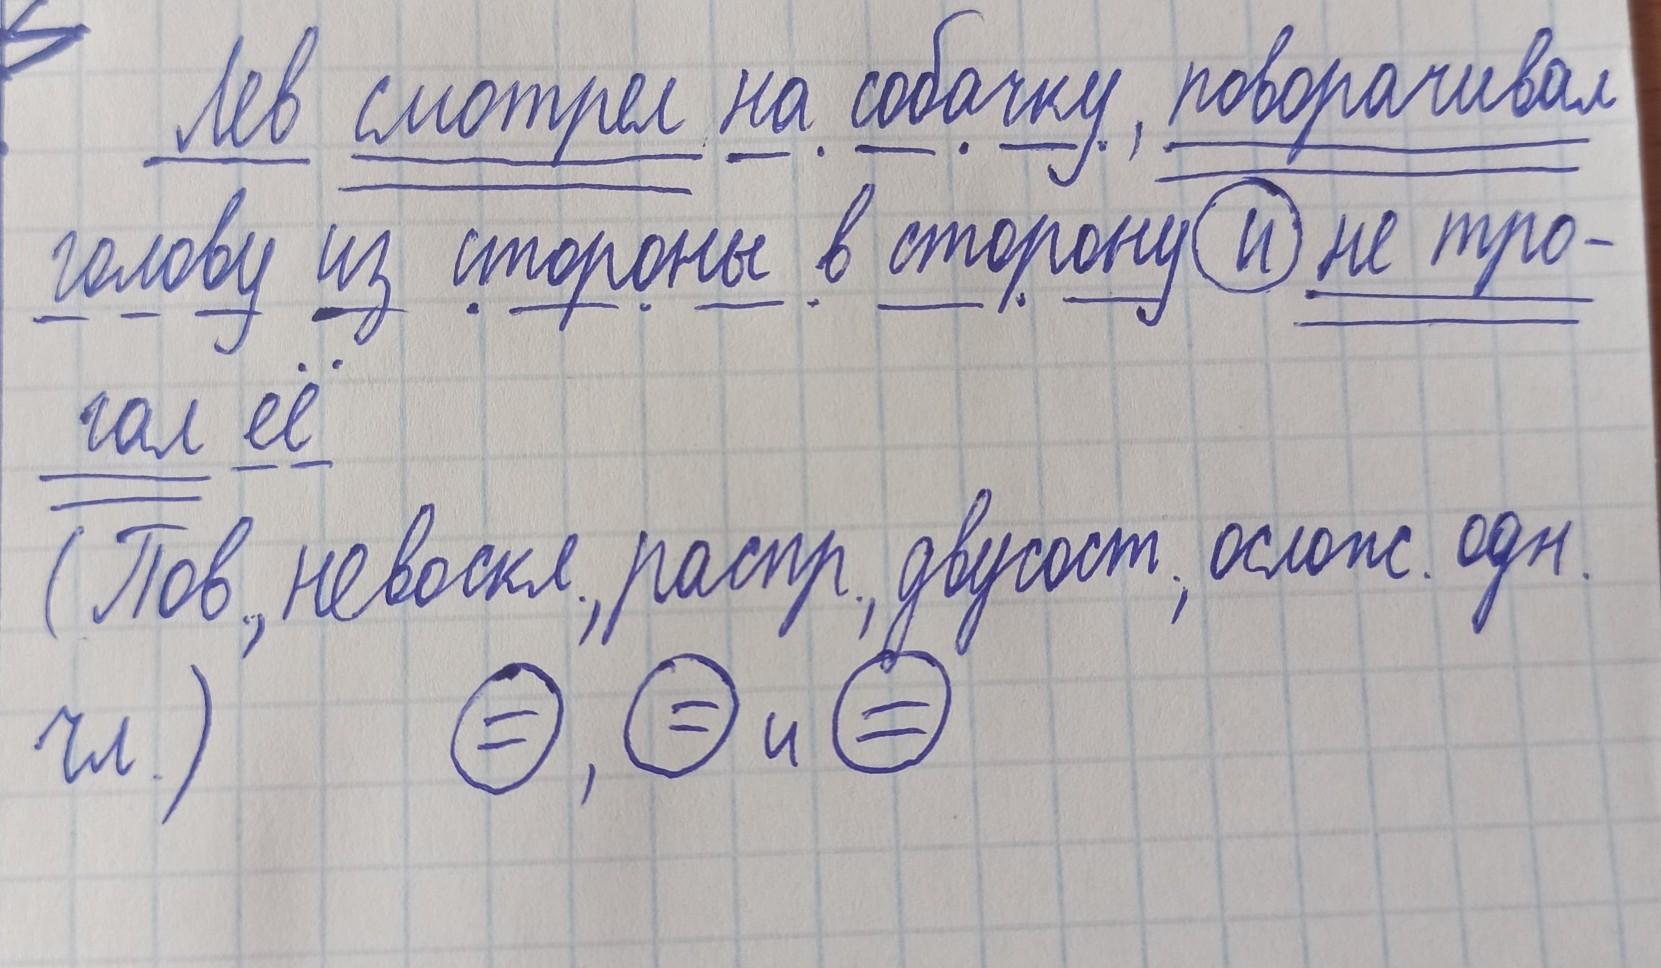 Лев смотрел на собачку, поворачивал
голову из стороны в сторону и не тро-
гал её
(Пов., невоскл., распр., двусост., ослож. одн.
чл.) =, = и =